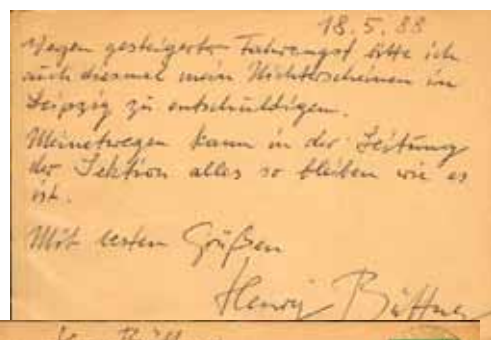 18.5.88
Wegen gesteigerter Fahrangst bitte ich
auch diesmal mein Nichterscheinen in
Leipzig zu entschuldigen.
Meinetwegen kann in der Leitung
der Sektion alles so bleiben wie es
ist.
Mit besten Grüßen
Henry Büttner